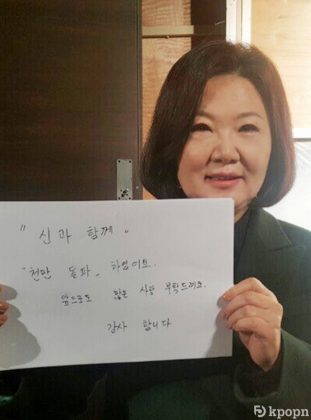 " 신과 함께 "
" 천만 돌파 " 하였어요..
앞으로도 많은 사랑 부탁드려요.
감사 합니다
kpopn